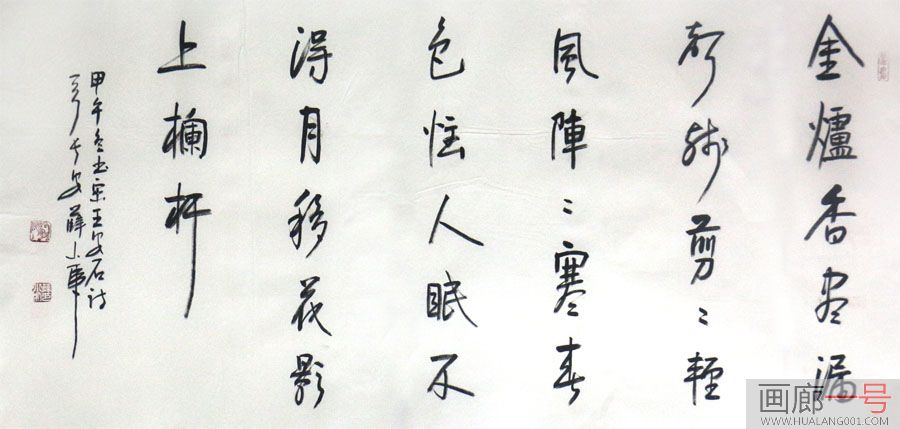 金爐香尽漏
声殘剪々輕
風陣々寒春
色惱人眠不
得月移花影
上欄杆
甲午冬书宋王安石诗
安薛小軍
画廊一号
WWW.HUALANG001.COM